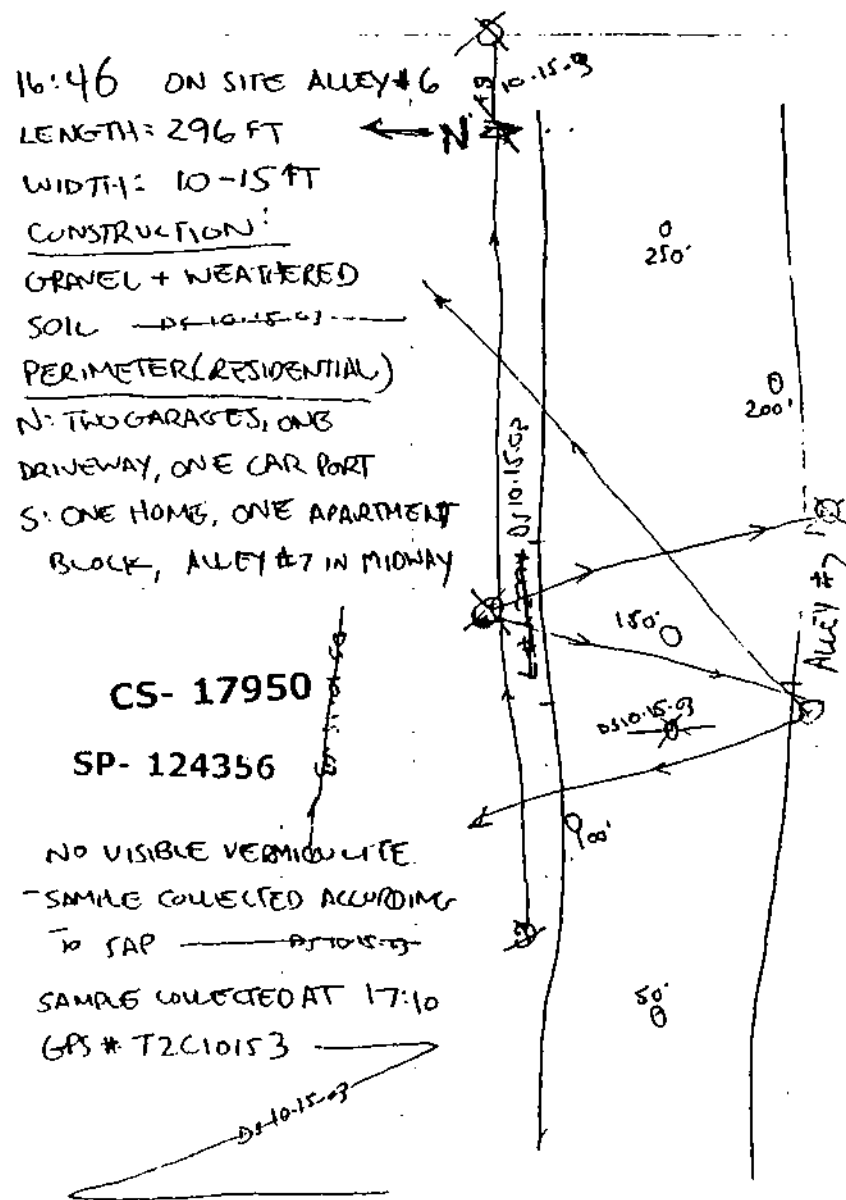 16:46 ON SITE ALLEY #6
LENGTH: 296 FT
WIDTH: 10-15 FT
CONSTRUCTION:
GRAVEL + WEATHERED
SOIL DS 10-15-03
PERIMETER (RESIDENTIAL)
N: TWO GARAGES, ONE
DRIVEWAY, ONE CAR PORT
S: ONE HOME, ONE APARTMENT
BLOCK, ALLEY #7 IN MIDWAY
CS- 17950
SP- 124356
NO VISIBLE VERMICULITE
- SAMPLE COLLECTED ACCORDING
TO SAP DS 10-15-03
SAMPLE COLLECTED AT 17:10
GPS # T2C10153
DS 10-15-03
10-15-03
N
250'
200'
DS 10.15.03
ALLEY #7
150'
DS 10-15-03
50'